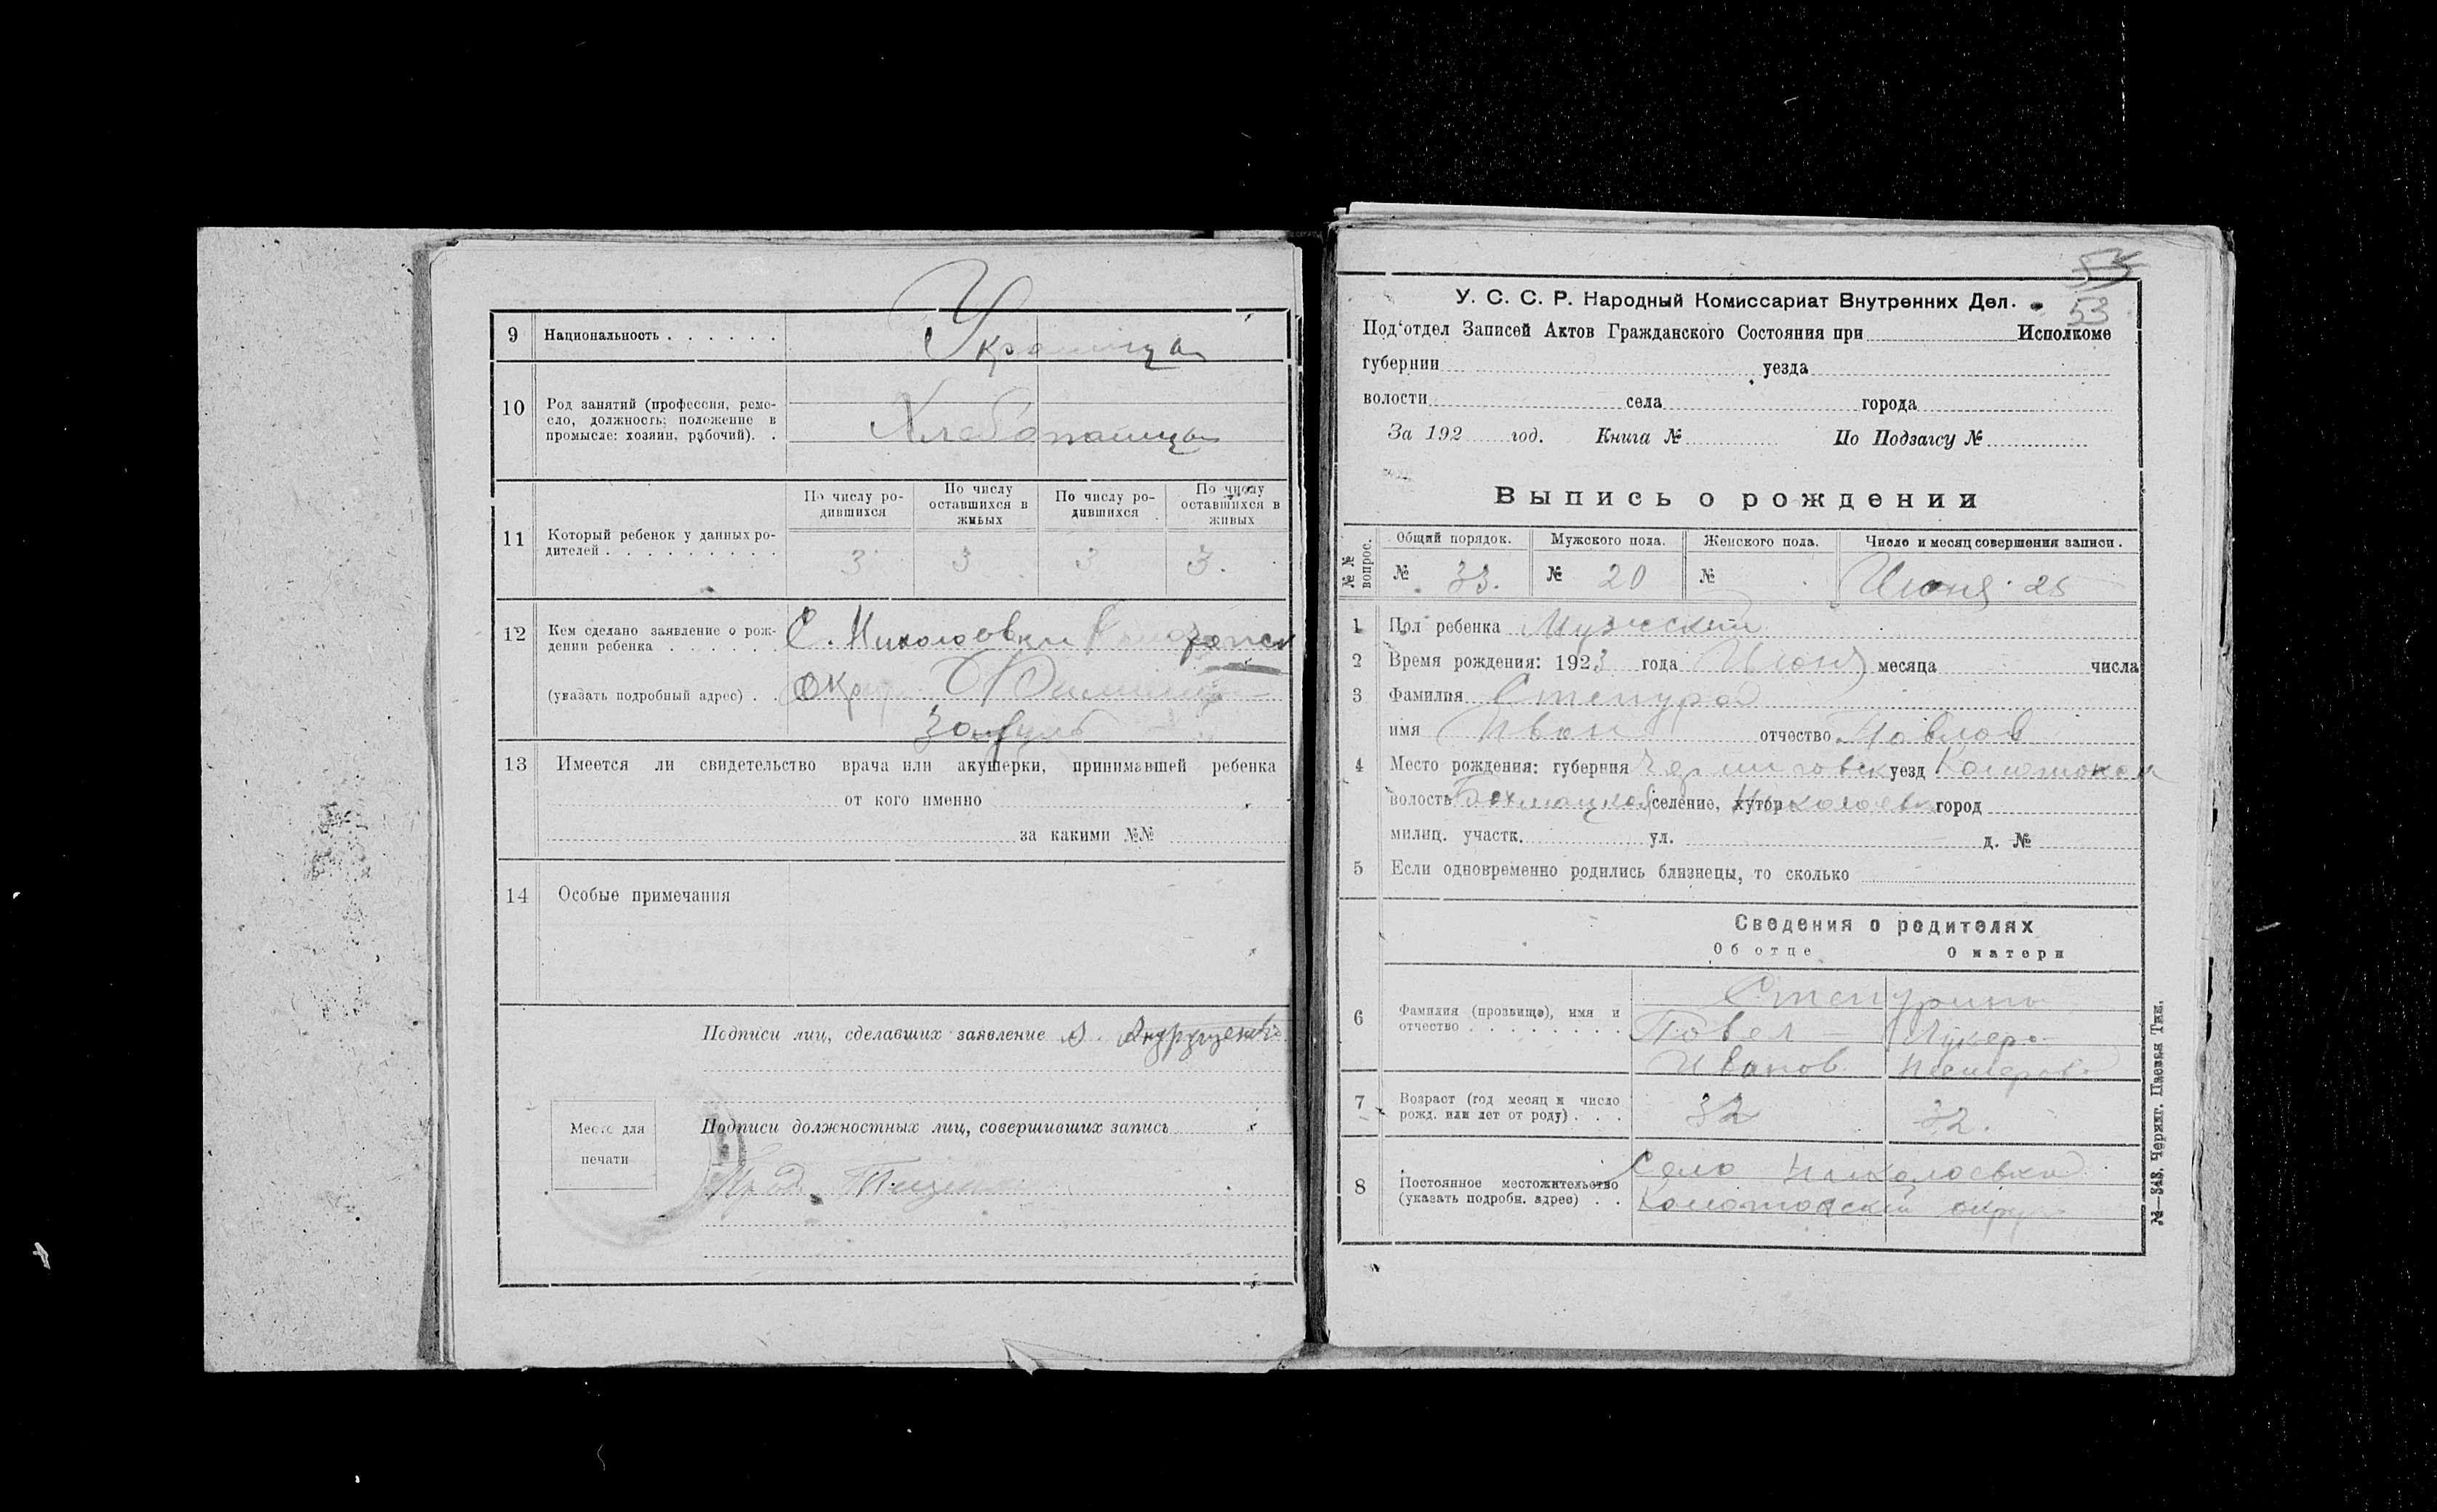 9 Национальность . . . . . . Украинцы
10 Род занятий (профессия, реме-
сло, должность; положение в
промысле: хозяин, рабочий). . Хлебопашцы
11 Который ребенок у данных ро-
дителей . . . . . . . . .
По числу ро-
дившихся
По числу
оставшихся в
живых
По числу ро-
дившихся
По числу
оставшихся в
живых
3 3 3 3.
12 Кем сделано заявление о рож-
дении ребенка . . . . . .
(указать подробный адрес) . .
С. Николоовки
13 Имеется ли свидетельство врача или акушерки, принимавшей ребенка
от кого именно
за какими №№
14 Особые примечания
Подписи лиц, сделавших заявление
Подписи должностных лиц, совершивших запись
Место для
печати
53
У. С. С. Р. Народный Комиссариат Внутренних Дел.
Под‘отдел Записей Актов Гражданского Состояния при Исполкоме
губернии уезда
волости села города
За 192 год. Книга № По Подзагсу №
Выпись о рождении
№ № вопрос.
Общий порядок. Мужского пола. Женского пола. Число и месяц совершения записи.
№ 33. № 20 № Июня 25
1 Пол ребенка Мужский
2 Время рождения: 1923 года Июня месяца числа
3 Фамилия Степура
имя Иван отчество Павлов
4 Место рождения: губерния Черниговск уезд Конотопск
волость Бахмацкая селение, хутор Николаевка город
милиц. участк. ул. д. №
5 Если одновременно родились близнецы, то сколько
Сведения о родителях
Об отце О матери
6 Фамилия (прозвище), имя и
отчество . . . . . . . .
Степурины
Павел
Иванов
7 Возраст (год месяц и число
рожд. или лет от роду) . . . 32 32.
8 Постоянное местожительство
(указать подробн. адрес) . .
Село Николаевка
Конотопский округ
№—343. Черниг. Паевая Тип.